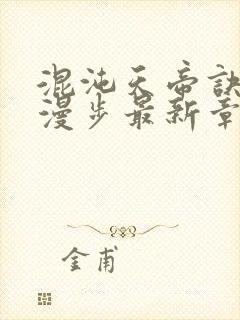 混沌天帝诀
漫步最新章
金甫